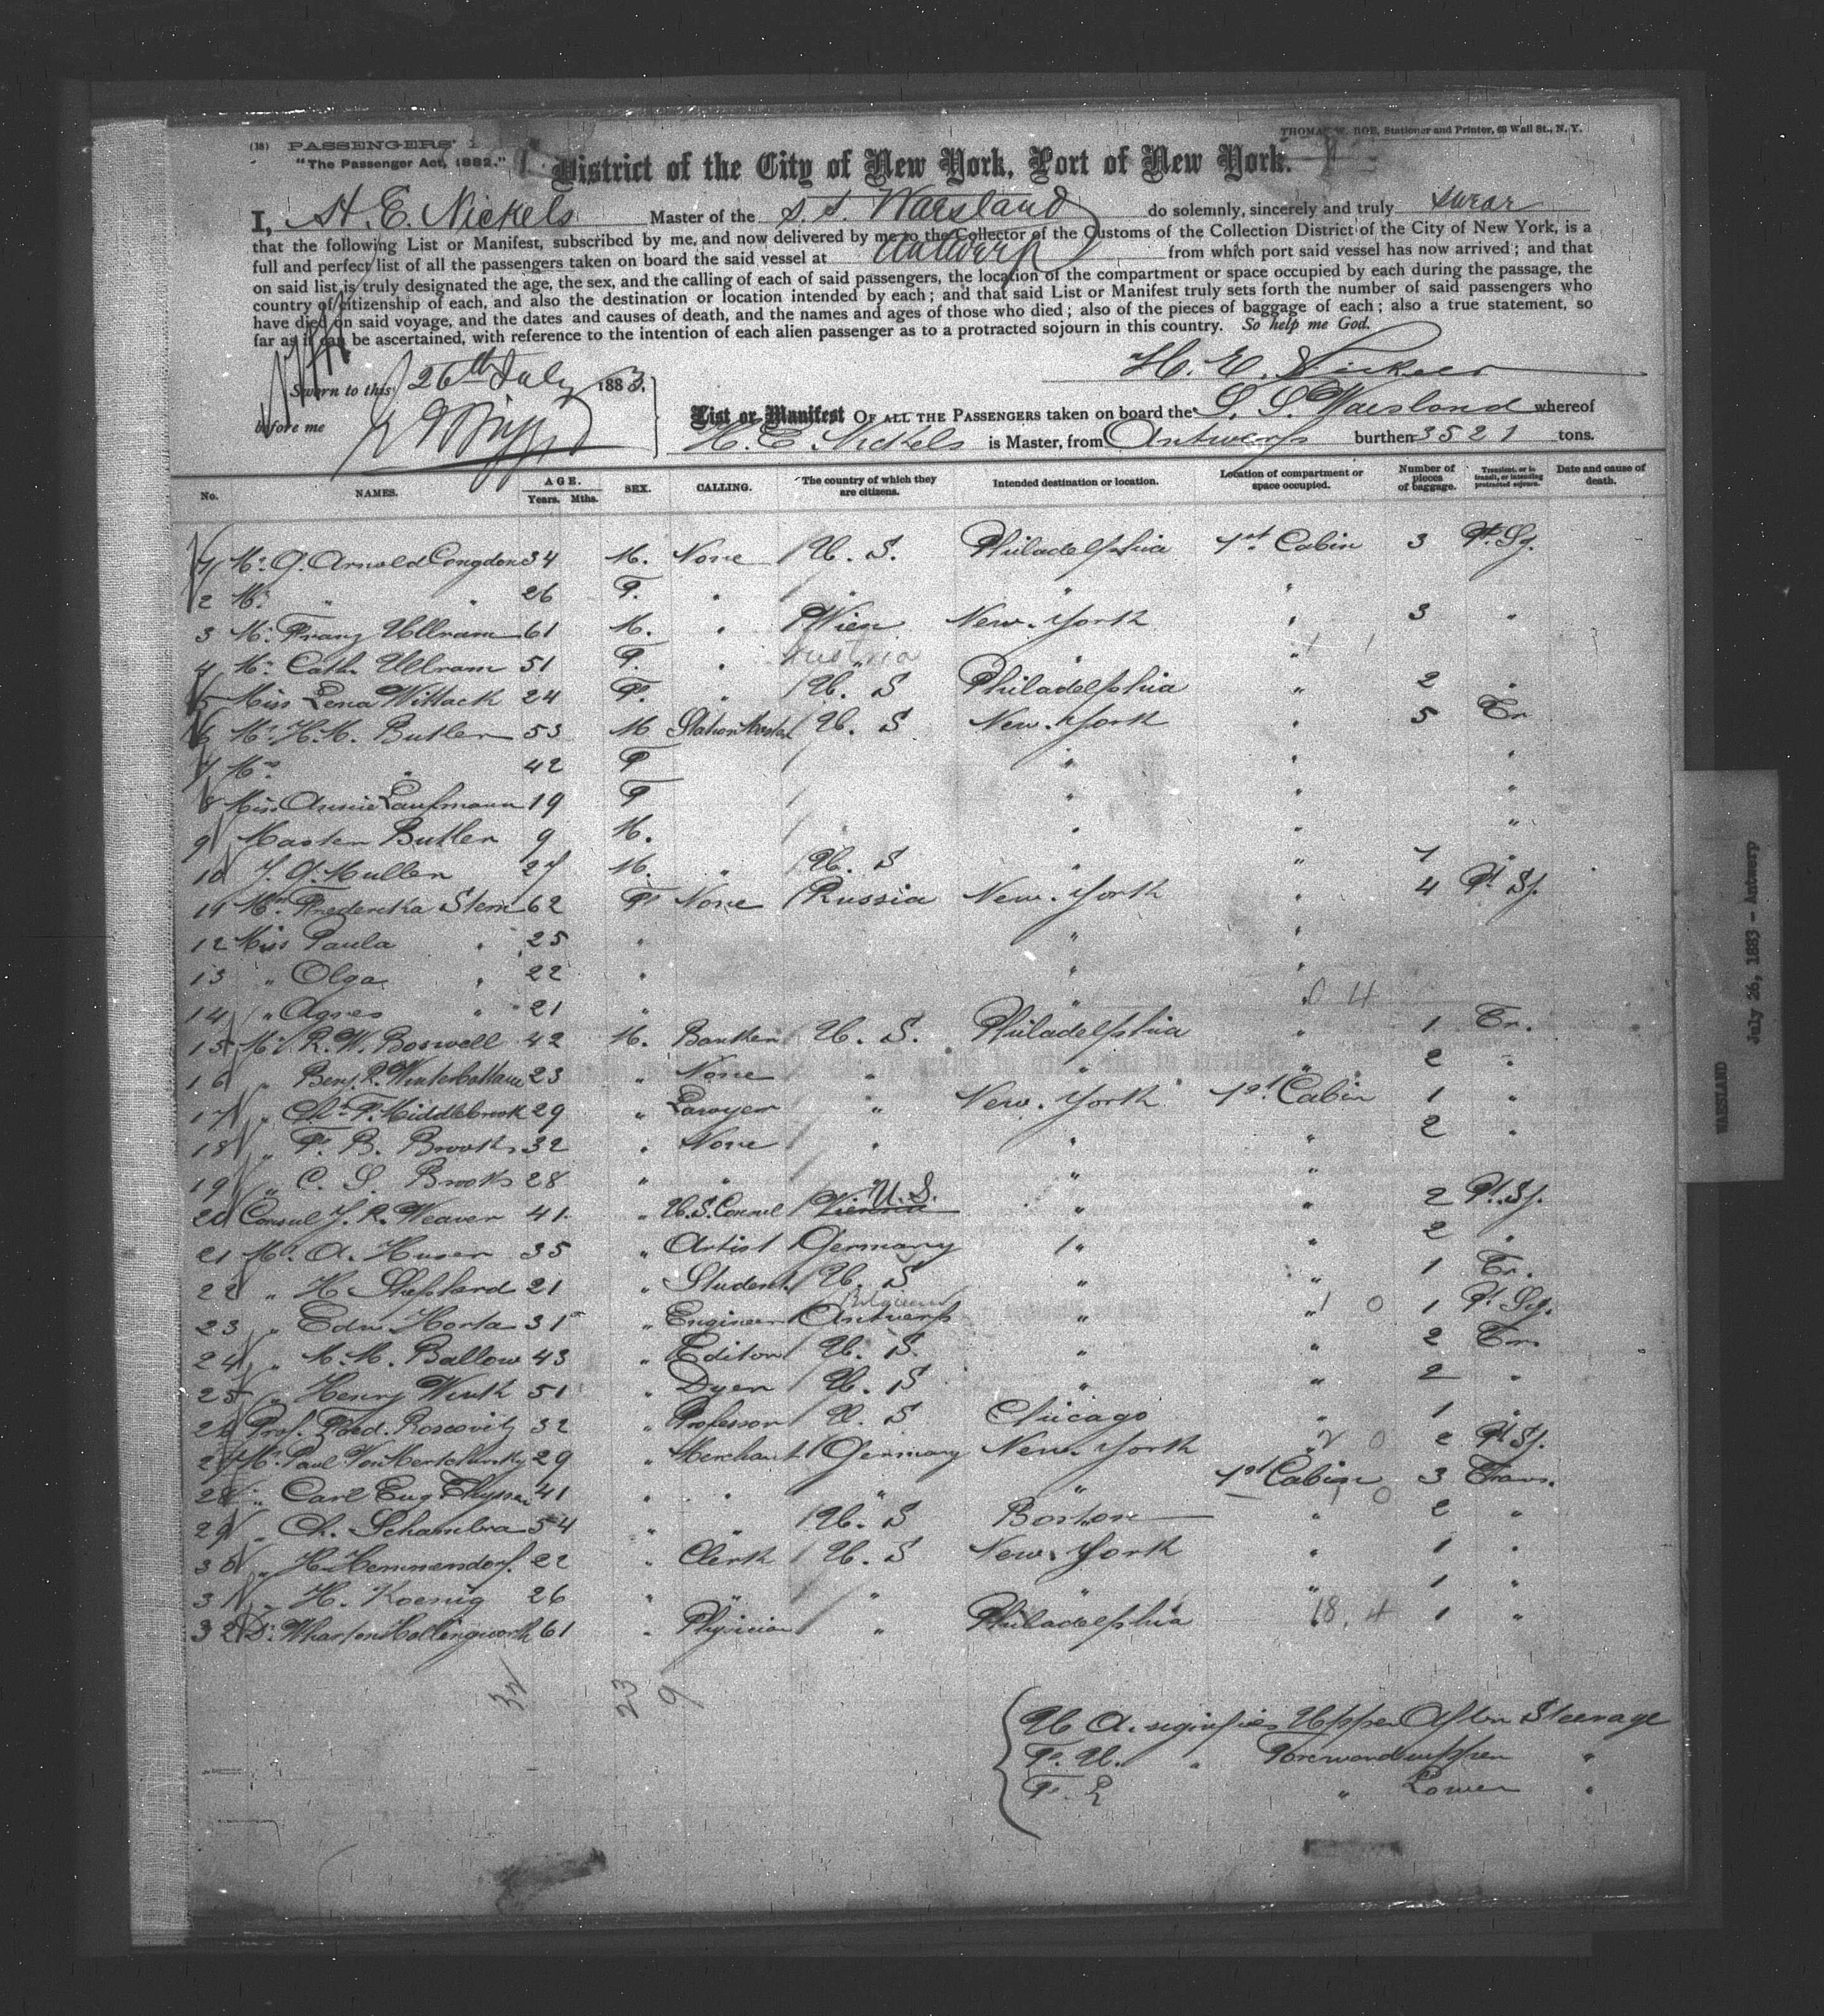 (18) PASSENGERS' 1
"The Passenger Act, 1882."
THOMAS W. ROE, Stationer and Printer, 68 Wall St., N. Y.
District of the City of New York, Port of New York.
I, H. E. Nickels Master of the S. S. Waesland do solemnly, sincerely and truly swear
that the following List or Manifest, subscribed by me, and now delivered by me to the Collector of the Customs of the Collection District of the City of New York, is a
full and perfect list of all the passengers taken on board the said vessel at Antwerp from which port said vessel has now arrived; and that
on said list is truly designated the age, the sex, and the calling of each of said passengers, the location of the compartment or space occupied by each during the passage, the
country of citizenship of each, and also the destination or location intended by each; and that said List or Manifest truly sets forth the number of said passengers who
have died on said voyage, and the dates and causes of death, and the names and ages of those who died; also of the pieces of baggage of each; also a true statement, so
far as it can be ascertained, with reference to the intention of each alien passenger as to a protracted sojourn in this country. So help me God.
H. E. Nickels
Sworn to this 26th July 1883.
before me
List or Manifest OF ALL THE PASSENGERS taken on board the S. S. Waesland whereof
H. E. Nickels is Master, from Antwerp burthen 3521 tons.
No. NAMES. AGE. Years. Mths. SEX. CALLING. The country of which they are citizens. Intended destination or location. Location of compartment or space occupied. Number of pieces of baggage. Transient, or in transit, or intending protracted sojourn. Date and cause of death.
1 Mr. G. Arnold Congdon 34 M. None U. S. Philadelphia 1st Cabin 3 Pt. Sj.
2 Mrs. " " 26 F. " " " "
3 Mr. Franz Ullram 61 M. " Wien New. York " 3 "
Austria
4 Mrs. Cath. Ullram 51 F. " " " "
5 Miss Lena Wittack 24 F. " U. S Philadelphia " 2 "
6 Mr. H. M. Butler 53 M Station Master U. S New. York " 5 Tr
7 Mrs. " 42 F " " "
8 Miss Annie Laufmann 19 F " " "
9 Master Butler 9 M. " " " "
10 J. G. Muller 27 M. " U. S " " 1 "
11 Mrs. Frederika Stern 62 F. None Russia New. York " 4 Pt Sj.
12 Miss Paula " 25 " " "
13 " Olga " 22 " " "
14 " Agnes " 21 " " " 0 4
15 Mr. R. W. Boswell 42 M. Banker U. S. Philadelphia " 1 Tr.
16 " Benj. R. Winterbottam 23 " None " " " 2 "
17 " Chs. F. Middlebrook 29 " Lawyer " New. York 1st Cabin 1 "
18 " F. B. Brooks 32 " None " " " 2 "
19 " C. S. Brooks 28 " " " "
20 Consul J. R. Weaver 41 " U. S. Consul Vienna U. S. " " 2 Pt. Sj.
21 Mr. A. Huser 35 " Artist Germany " " 2 "
22 " H Shephard 21 " Student U. S " " 1 Tr.
Belgium
23 " Edw Horta 31 " Engineer Antwerp " " 1 0 1 Pt Sj.
24 " M. M. Ballow 43 " Editor U. S. " " 2 Tr.
25 " Henry Wirth 51 " Dyer U. S " " 2 "
26 Prof. Ferd. Roscovitz 32 " Professor U. S Chicago " 1 "
27 Mr. Paul Von 29 " Merchant Germany New. York " 2 0 2 Pt Sj.
28 " Carl Eug Thyssen 41 " " " " 1st Cabin 3 Trans.
29 " Ch. Schambra 54 " " U. S Boston " 1 0 2 "
30 " H. Hemmendorf. 22 " Clerk U. S New. York " 1 "
31 " H. Koenig 26 " " " " " 1 "
32 Dr. Wharton Hollingworth 61 " Physician " Philadelphia 18. 4 1 "
32 23 9
U A. signifies Upper After Steerage
F. U. " Foreward upper "
F. L " Lower "
WAESLAND July 26, 1883 - Antwerp